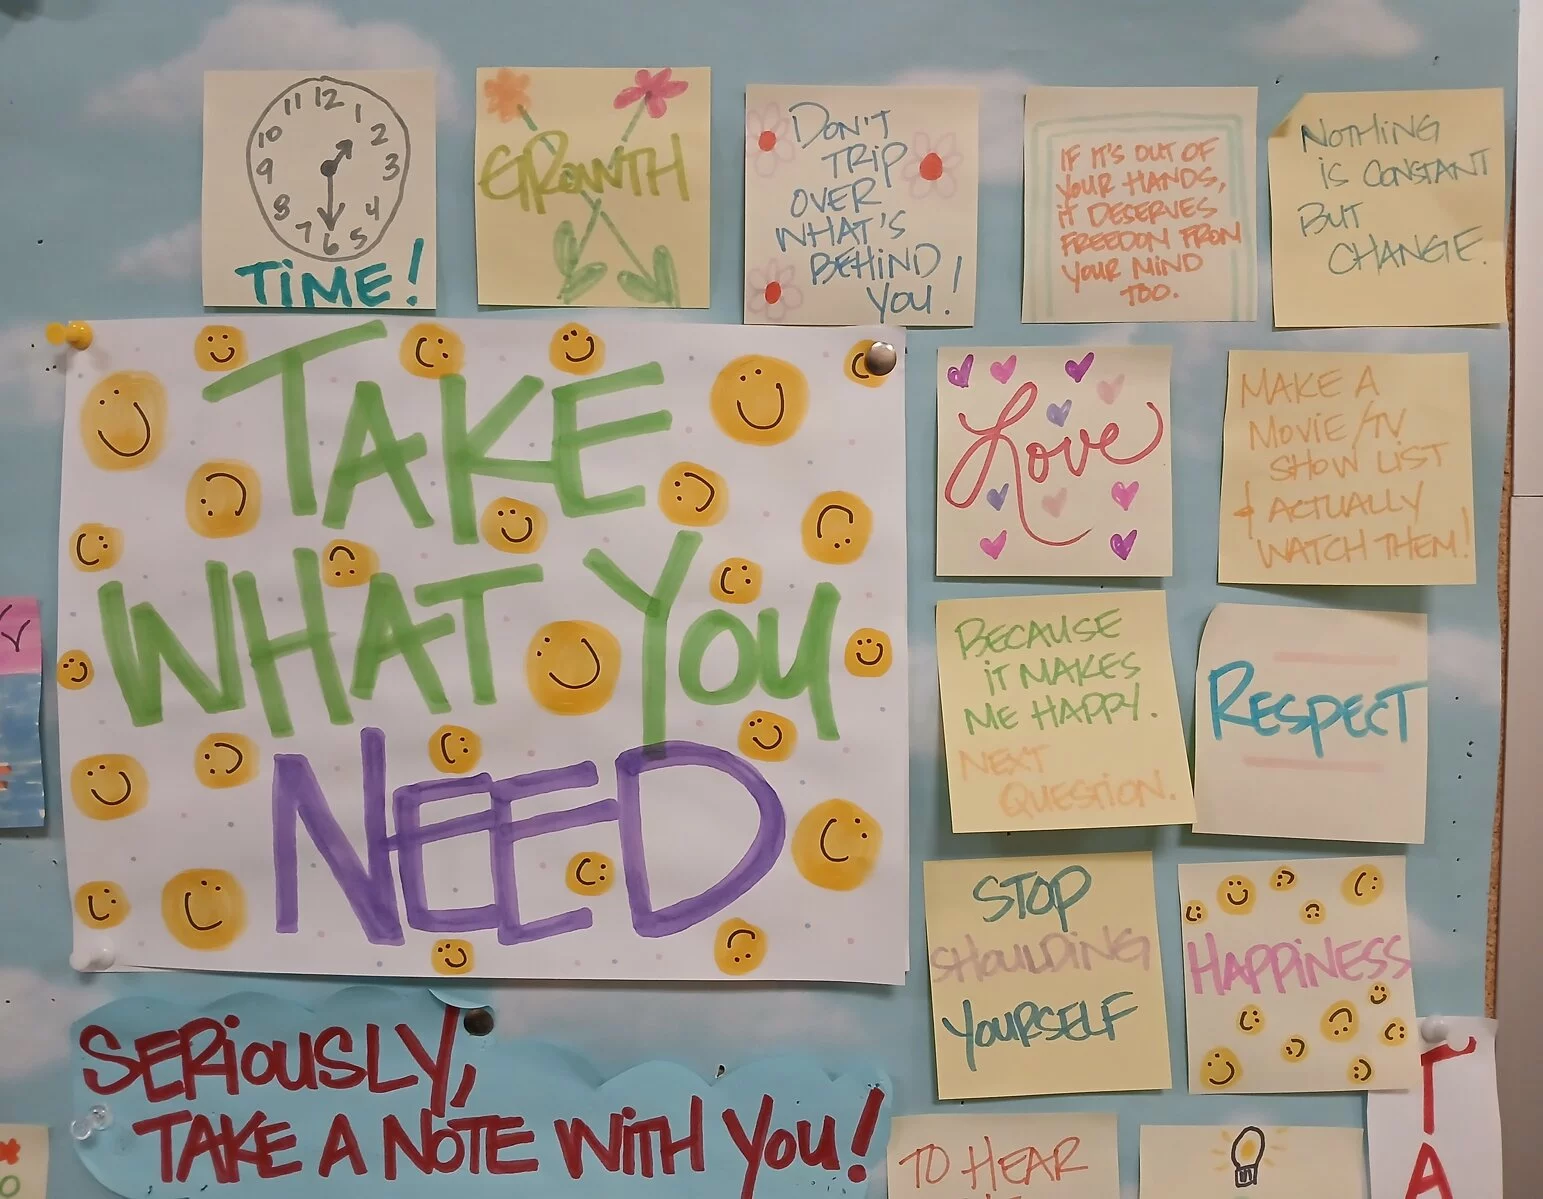 11 12 1
10 2
9 3
8 4
7 6 5
TIME!
GROWTH
DON'T
TRIP
OVER
WHAT'S
BEHIND
YOU!
IF IT'S OUT OF
YOUR HANDS,
IT DESERVES
FREEDOM FROM
YOUR MIND
TOO.
NOTHING
IS CONSTANT
BUT
CHANGE.
TAKE
WHAT YOU
NEED
Love
MAKE A
MOVIE/TV
SHOW LIST
& ACTUALLY
WATCH THEM!
BECAUSE
IT MAKES
ME HAPPY.
NEXT
QUESTION.
RESPECT
STOP
SHOULDING
YOURSELF
HAPPINESS
SERIOUSLY,
TAKE A NOTE WITH YOU!
TO HEAR
A